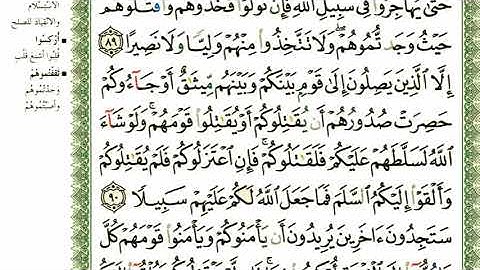 حَتَّىٰ يُهَاجِرُوا۟ فِى سَبِيلِ ٱللَّهِ فَإِن تَوَلَّوْا۟ فَخُذُوهُمْ وَٱقْتُلُوهُمْ
حَيْثُ وَجَدتُّمُوهُمْ وَلَا تَتَّخِذُوا۟ مِنْهُمْ وَلِيًّا وَلَا نَصِيرًا ٨٩
إِلَّا ٱلَّذِينَ يَصِلُونَ إِلَىٰ قَوْمٍ بَيْنَكُمْ وَبَيْنَهُم مِّيثَٰقٌ أَوْ جَآءُوكُمْ
حَصِرَتْ صُدُورُهُمْ أَن يُقَٰتِلُوكُمْ أَوْ يُقَٰتِلُوا۟ قَوْمَهُمْ وَلَوْ شَآءَ
ٱللَّهُ لَسَلَّطَهُمْ عَلَيْكُمْ فَلَقَٰتَلُوكُمْ فَإِنِ ٱعْتَزَلُوكُمْ فَلَمْ يُقَٰتِلُوكُمْ
وَأَلْقَوْا۟ إِلَيْكُمُ ٱلسَّلَمَ فَمَا جَعَلَ ٱللَّهُ لَكُمْ عَلَيْهِمْ سَبِيلًا ٩٠
سَتَجِدُونَ ءَاخَرِينَ يُرِيدُونَ أَن يَأْمَنُوكُمْ وَيَأْمَنُوا۟ قَوْمَهُمْ كُلَّ
الاستسلام
والانقياد للصلح
أُرْكِسُوا
قُلِبُوا أشنع قلب
ثَقِفْتُمُوهُمْ
وجدتموهم